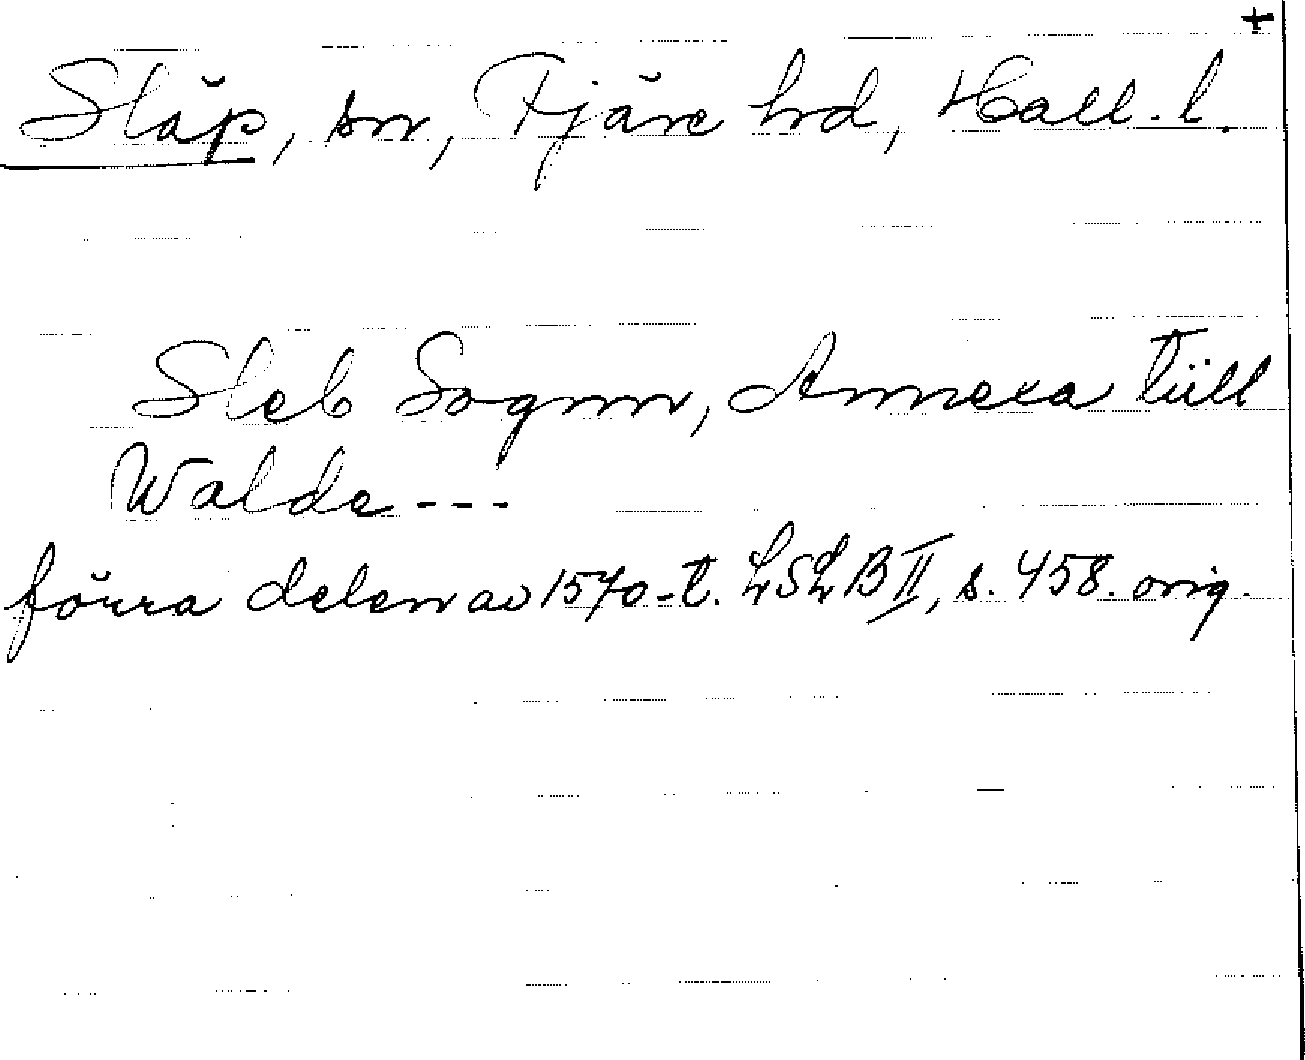 +
Släp, sn, Fjäre hd, Hall. l.
Sleb Sognn, Annexa tiill
Walde ---
förra delen av 1570-t. LSLB II, s. 458. orig.